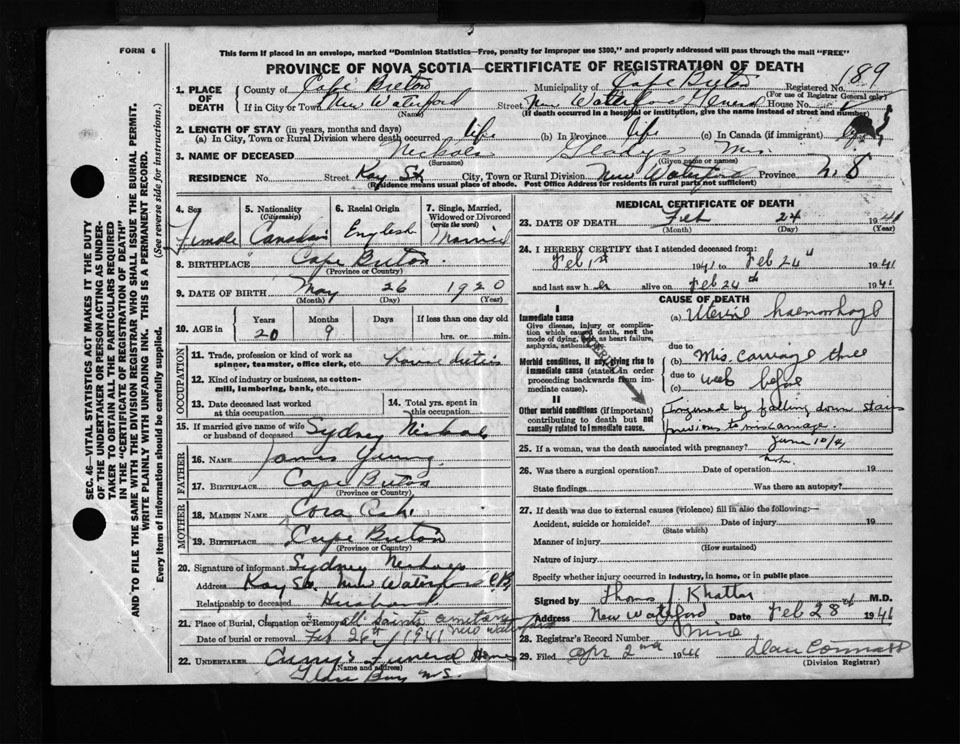 FORM 6
This form if placed in an envelope, marked "Dominion Statistics—Free, penalty for improper use $300," and properly addressed will pass through the mail "FREE"
PROVINCE OF NOVA SCOTIA—CERTIFICATE OF REGISTRATION OF DEATH
1. PLACE OF DEATH
County of Cape Breton Municipality of Cape Breton Registered No. 189
(For use of Registrar General only)
If in City or Town New Waterford Street New Waterford General House No.
(Name) (If death occurred in a hospital or institution, give the name instead of street and number)
2. LENGTH OF STAY (in years, months and days)
(a) In City, Town or Rural Division where death occurred life (b) In Province life (c) In Canada (if immigrant)
3. NAME OF DECEASED Gladys Mrs.
(Surname) (Given name or names)
RESIDENCE No. Street Kay St City, Town or Rural Division New Waterford Province N.S
(Residence means usual place of abode. Post Office Address for residents in rural parts not sufficient)
4. Sex Female
5. Nationality (Citizenship)
6. Racial Origin English
7. Single, Married, Widowed or Divorced (write the word) Married
8. BIRTHPLACE Cape Breton
(Province or Country)
9. DATE OF BIRTH May 26 1920
(Month) (Day) (Year)
10. AGE in Years 20 Months 9 Days If less than one day old hrs. or min.
OCCUPATION
11. Trade, profession or kind of work as spinner, teamster, office clerk, etc. house duties
12. Kind of industry or business, as cotton-mill, lumbering, bank, etc.
13. Date deceased last worked at this occupation
14. Total yrs. spent in this occupation
15. If married give name of wife or husband of deceased Sydney
FATHER
16. NAME James Young
17. BIRTHPLACE Cape Breton
(Province or Country)
MOTHER
18. MAIDEN NAME Cora
19. BIRTHPLACE Cape Breton
(Province or Country)
20. Signature of informant Sydney
Address Kay St. New Waterford C.B.
Relationship to deceased Husband
21. Place of Burial, Cremation or Removal All Saints New Waterford
Date of burial or removal Feb 26th 1941
22. UNDERTAKER Curry's Funeral Home
(Name and address)
Glace Bay N.S.
MEDICAL CERTIFICATE OF DEATH
23. DATE OF DEATH Feb 24 1941
(Month) (Day) (Year)
24. I HEREBY CERTIFY that I attended deceased from
Feb 1st 1941 to Feb 24th 1941
and last saw her alive on Feb 24th 1941
CAUSE OF DEATH
I
Immediate cause
Give disease, injury or complication which caused death, not the mode of dying, such as heart failure, asphyxia, asthenia, etc.
(a) Uterine haemorrhage
due to
Morbid conditions, if any, giving rise to immediate cause (stated in order proceeding backwards from immediate cause).
(b) Miscarriage three
due to
(c) week before
II
Other morbid conditions (if important) contributing to death but not causally related to immediate cause.
Injured by falling down stairs
previous to miscarriage.
25. If a woman, was the death associated with pregnancy?
26. Was there a surgical operation? Date of operation 19
State findings Was there an autopsy?
27. If death was due to external causes (violence) fill in also the following:—
Accident, suicide or homicide? Date of injury 19
(State which)
Manner of injury
(How sustained)
Nature of injury
Specify whether injury occurred in industry, in home, or in public place
Signed by Thomas J Khattar M.D.
Address New Waterford Date Feb 28th 1941
28. Registrar's Record Number
29. Filed Apr 2nd 1941
(Division Registrar)
SEC. 46—VITAL STATISTICS ACT MAKES IT THE DUTY
OF THE UNDERTAKER OR PERSON ACTING AS UNDER-
TAKER TO OBTAIN ALL THE PARTICULARS REQUIRED
IN THE "CERTIFICATE OF REGISTRATION OF DEATH"
AND TO FILE THE SAME WITH THE DIVISION REGISTRAR WHO SHALL ISSUE THE BURIAL PERMIT.
WRITE PLAINLY WITH UNFADING INK. THIS IS A PERMANENT RECORD.
Every item of information should be carefully supplied. (See reverse side for instructions.)